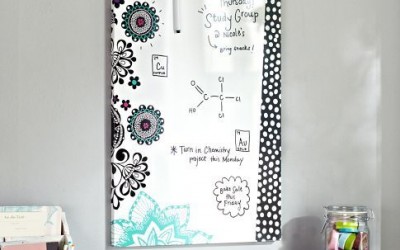 Thursday
Study Group
@ Nicole's
Bring snacks!
Cu
Cl
O
Cl
Cl
HO
Au
* Turn in Chemistry
project this Monday
Bake Sale
this
Friday